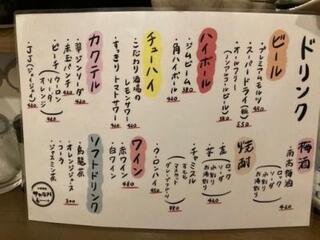 ドリンク
ビール
・プレミアムモルツ 480
・スーパードライ(瓶) 550
・オールフリー
ノンアルコールビール
ハイボール
・ジムビーム 380
・角ハイボール 420
チューハイ
・こだわり酒場の
レモンサワー 420
・すっきりトマトサワー
カクテル
・翠ジンソーダ
・赤玉パンチ 420
・ピーチ
ウーロン
ソーダ
オレンジ
・JJ(ジョイジャイン) 420
梅酒
・南高梅酒
ロック
ソーダ
水割り
お湯割り
焼酎
・麦
・芋
ロック
ソーダ
水割り
お湯割り
・チャミスル
マスカット
すもも
グレープフルーツ
・ウーロンハイ 450
ワイン
・赤ワイン
・白ワイン 480
ソフトドリンク
・烏龍茶
・オレンジジュース
・コーラ
・ジャスミン茶 300